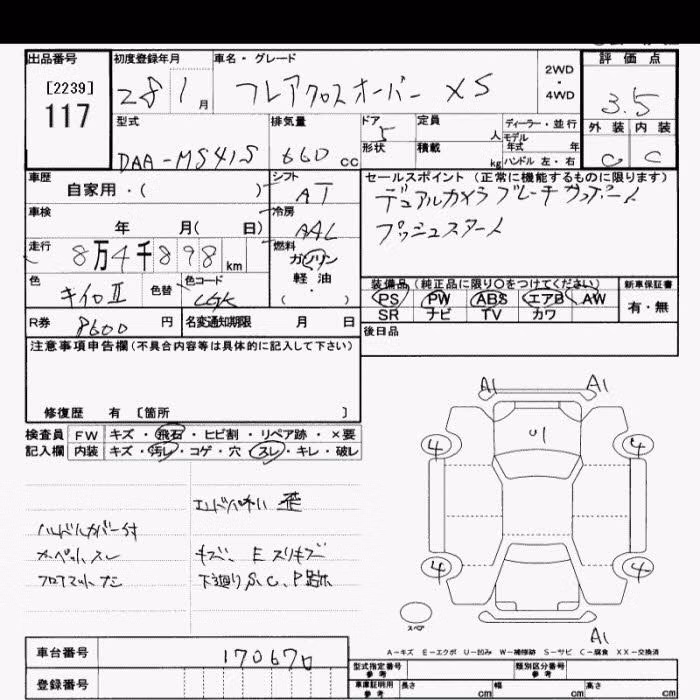 出品番号 初度登録年月 車名・グレード 評価点
[2239]
117
28 1月
フレアクロスオーバー XS
2WD・4WD
3.5
外装 内装
C C
型式 排気量 ドア 定員 ディーラー・並行
DAA-MS41S 660cc 5 人 モデル年式 年
形状 積載 kg ハンドル 左・右
車歴 シフト セールスポイント (正常に機能するものに限ります)
自家用・( ) AT デュアルカメラブレーキサポート
車検 冷房 プッシュスタート
年 月( 日) AAC
走行 燃料
8万4千898km ガソリン
軽油
・( )
色 色替 色コード
キイロII
装備品 (純正品に限り○をつけてください) 新車保証書
PS PW ABS エアB AW 有・無
SR ナビ TV カワ
R券 8600円 名変通知期限 月 日
後日品
注意事項申告欄(不具合内容等は具体的に記入して下さい)
修復歴 有 [箇所 ]
検査員 FW キズ・飛石・ヒビ割・リペア跡・×要
記入欄 内装 キズ・汚レ・コゲ・穴・スレ・キレ・破レ
A1 A1
U1
4 4
4 4
A1
歪
ハンドルカバー付
カーペットスレ キズ、Eスリキズ
フロアマットナシ 下廻りS.C,P跡
スペア
A-キズ E-エクボ U-凹み W-補修跡 S-サビ C-腐食 XX-交換済
車台番号 170670
登録番号
型式指定番号 参考 類別区分番号 参考
車庫証明用 参考 長さ cm 幅 cm 高さ cm